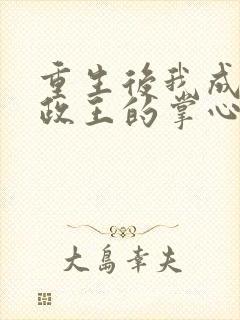 重生後我成
政王的掌心
大島幸夫